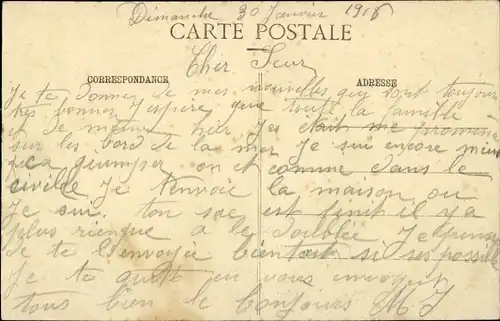 Dimanche 30 Janvier 1916
CARTE POSTALE
Cher Seur
CORRESPONDANCE
ADRESSE
Je te donne de mes nouvelles qui sont toujour
très bonnes J'espère que toute la famille
et de meme hier Jes était me promener
sur les bord de la mer Je sui encore mieux
grimper on et comme dans le
civil de Je t'envoie la maison ou
Je sui ton sac est finit il y a
plus rien que a le Je pense
de te l'envoyée bientait si ses possible
Je te quitt en vous envoyent
tous bien le bonjours M J